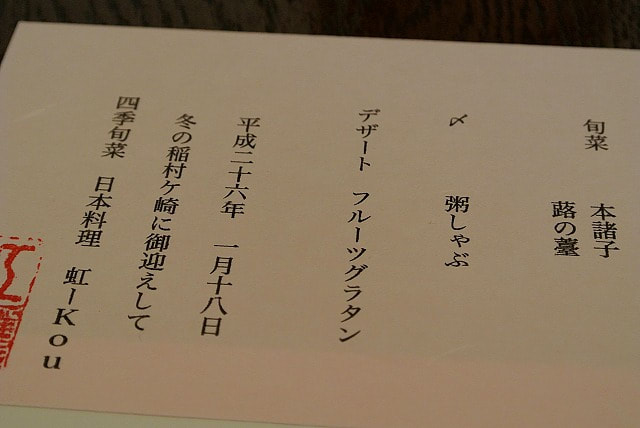 旬菜　本諸子
蕗の薹
〆　粥しゃぶ
デザート　フルーツグラタン
平成二十六年　一月十八日
冬の稲村ヶ崎に御迎えして
四季旬菜　日本料理　虹ーKou